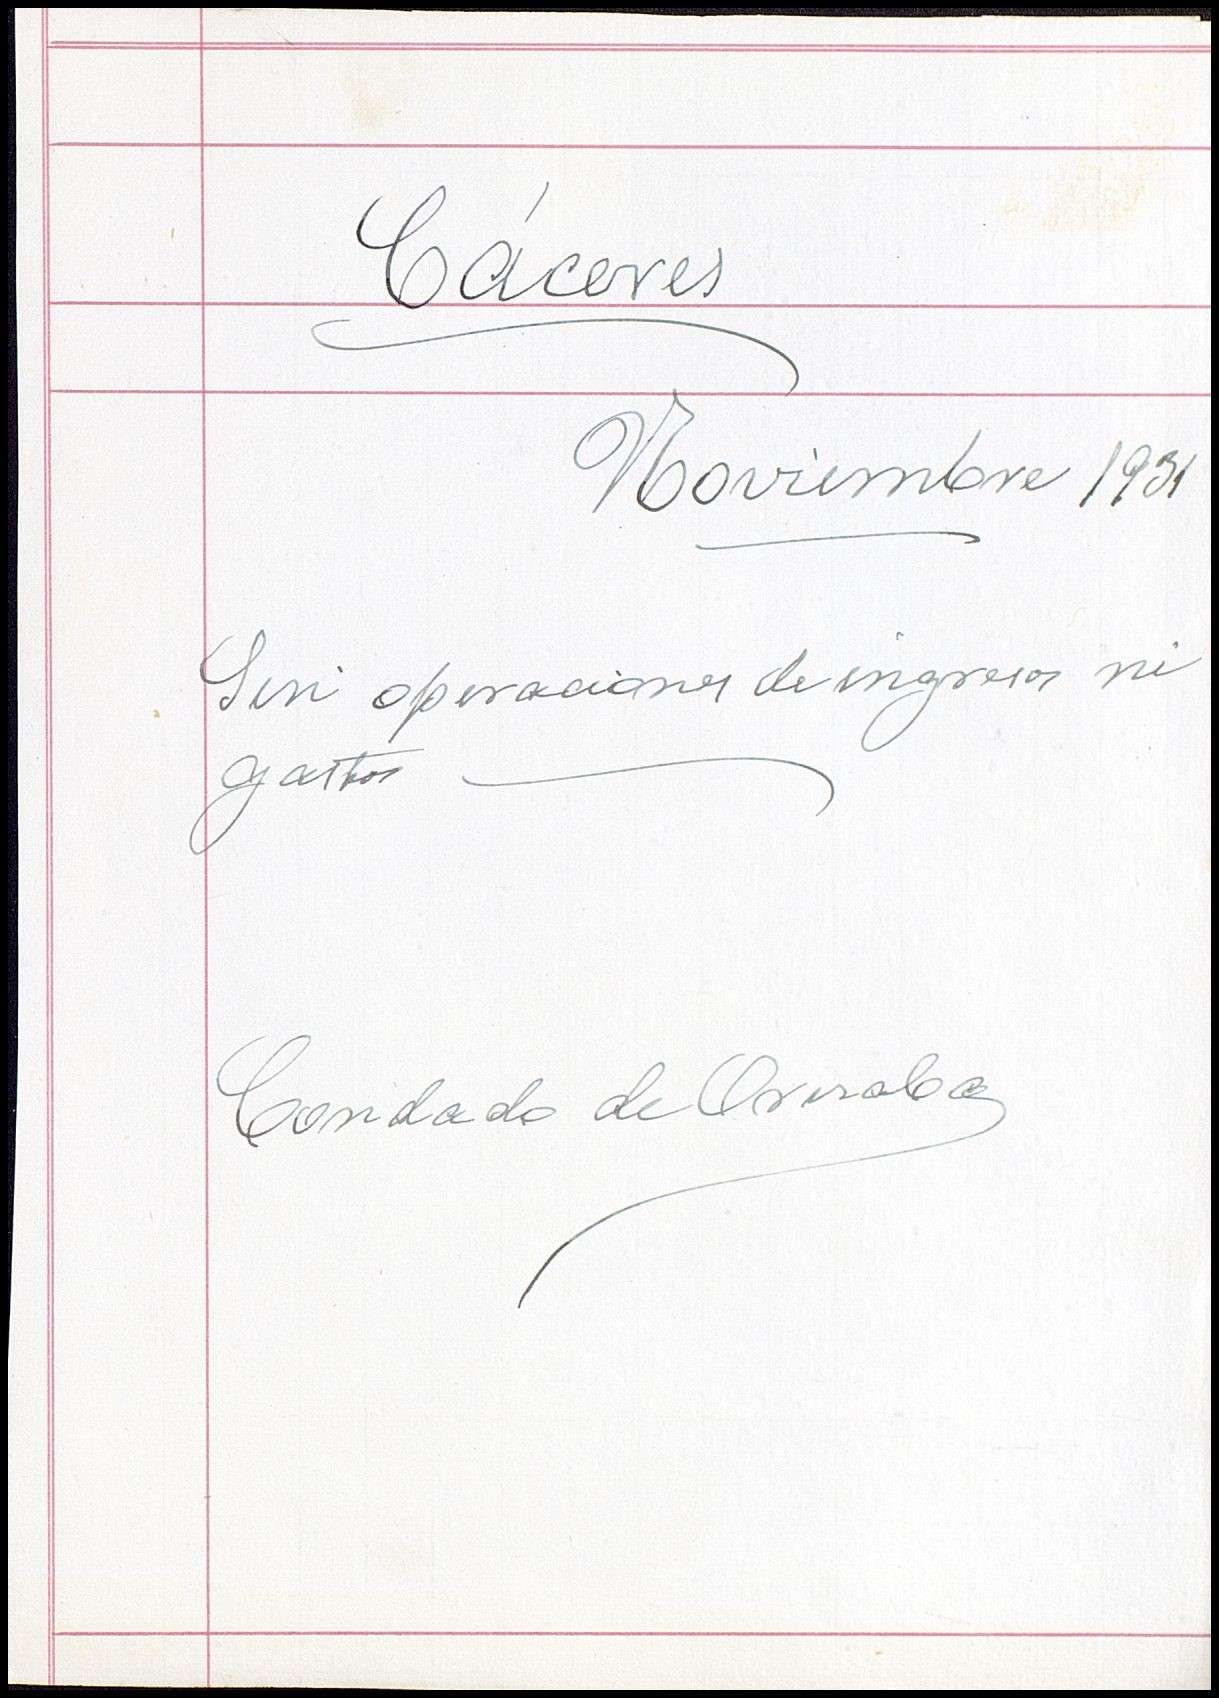 Cáceres
Noviembre 1931
Sin operaciones de ingresos ni
gastos
Condado de Orizaba